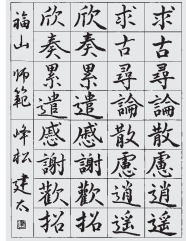 求古尋論散慮逍遥
求古尋論散慮逍遥
欣奏累遣慼謝歡招
欣奏累遣慼謝歡招
福山 師範 峰松 建太